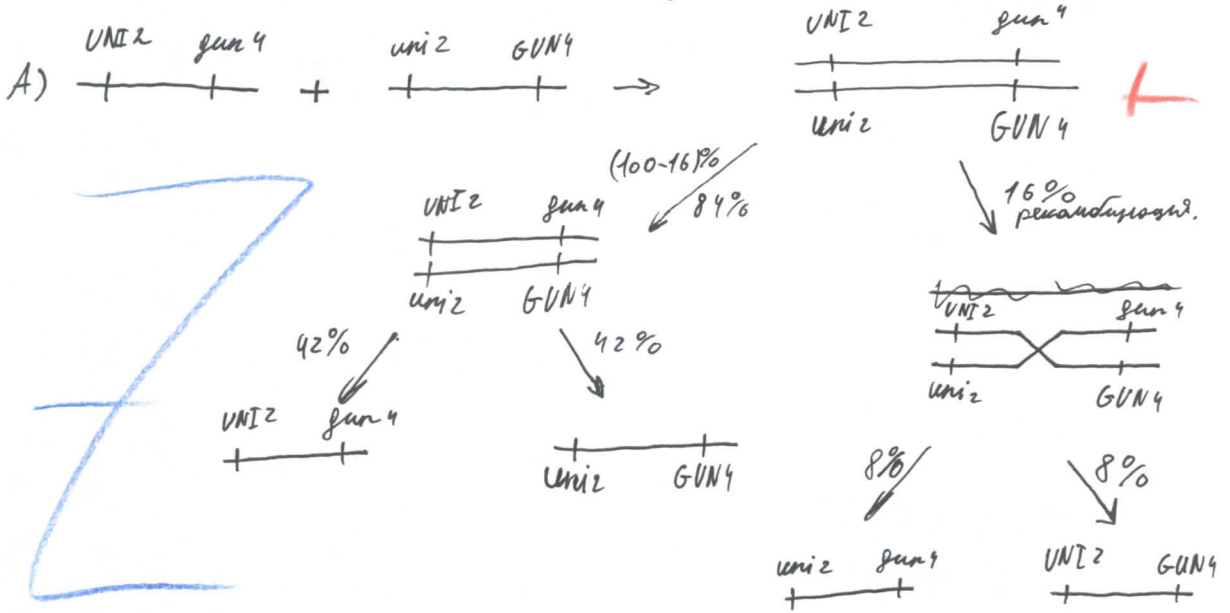 UNI2 gun4
UNI2 gun4 uni2 GUN4
A) + →
uni2 GUN4
(100-16)%
84%
16%
рекомбинация.
UNI2 gun4
uni2 GUN4
UNI2 gun4
uni2 GUN4
42% 42%
UNI2 gun4
uni2 GUN4
8% 8%
uni2 gun4 UNI2 GUN4